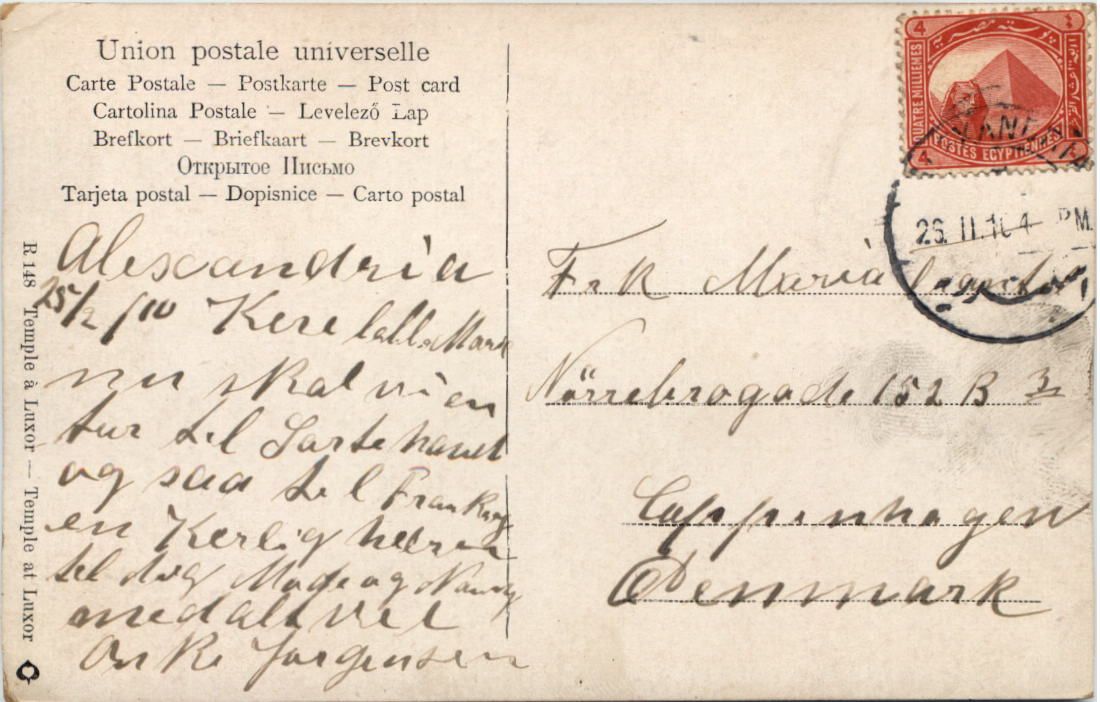 Union postale universelle
Carte Postale — Postkarte — Post card
Cartolina Postale — Levelező Lap
Brefkort — Briefkaart — Brevkort
Открытое Письмо
Tarjeta postal — Dopisnice — Carto postal
R 148 Temple à Luxor — Temple at Luxor
Alexandria
25/2 /10 Kere lille Marie
nu skal vi en
tur til Sorte havet
og saa til
en Kerlig hilsen
til dig og
med alt vel
Jørgensen
4
QUATRE MILLIEMES
بوستة مصرية
POSTES EGYPTIENNES
4
26 II.10 4 PM.
Frk Maria
Nörrebrogade 152 B 3
Coppenhagen
Denmark